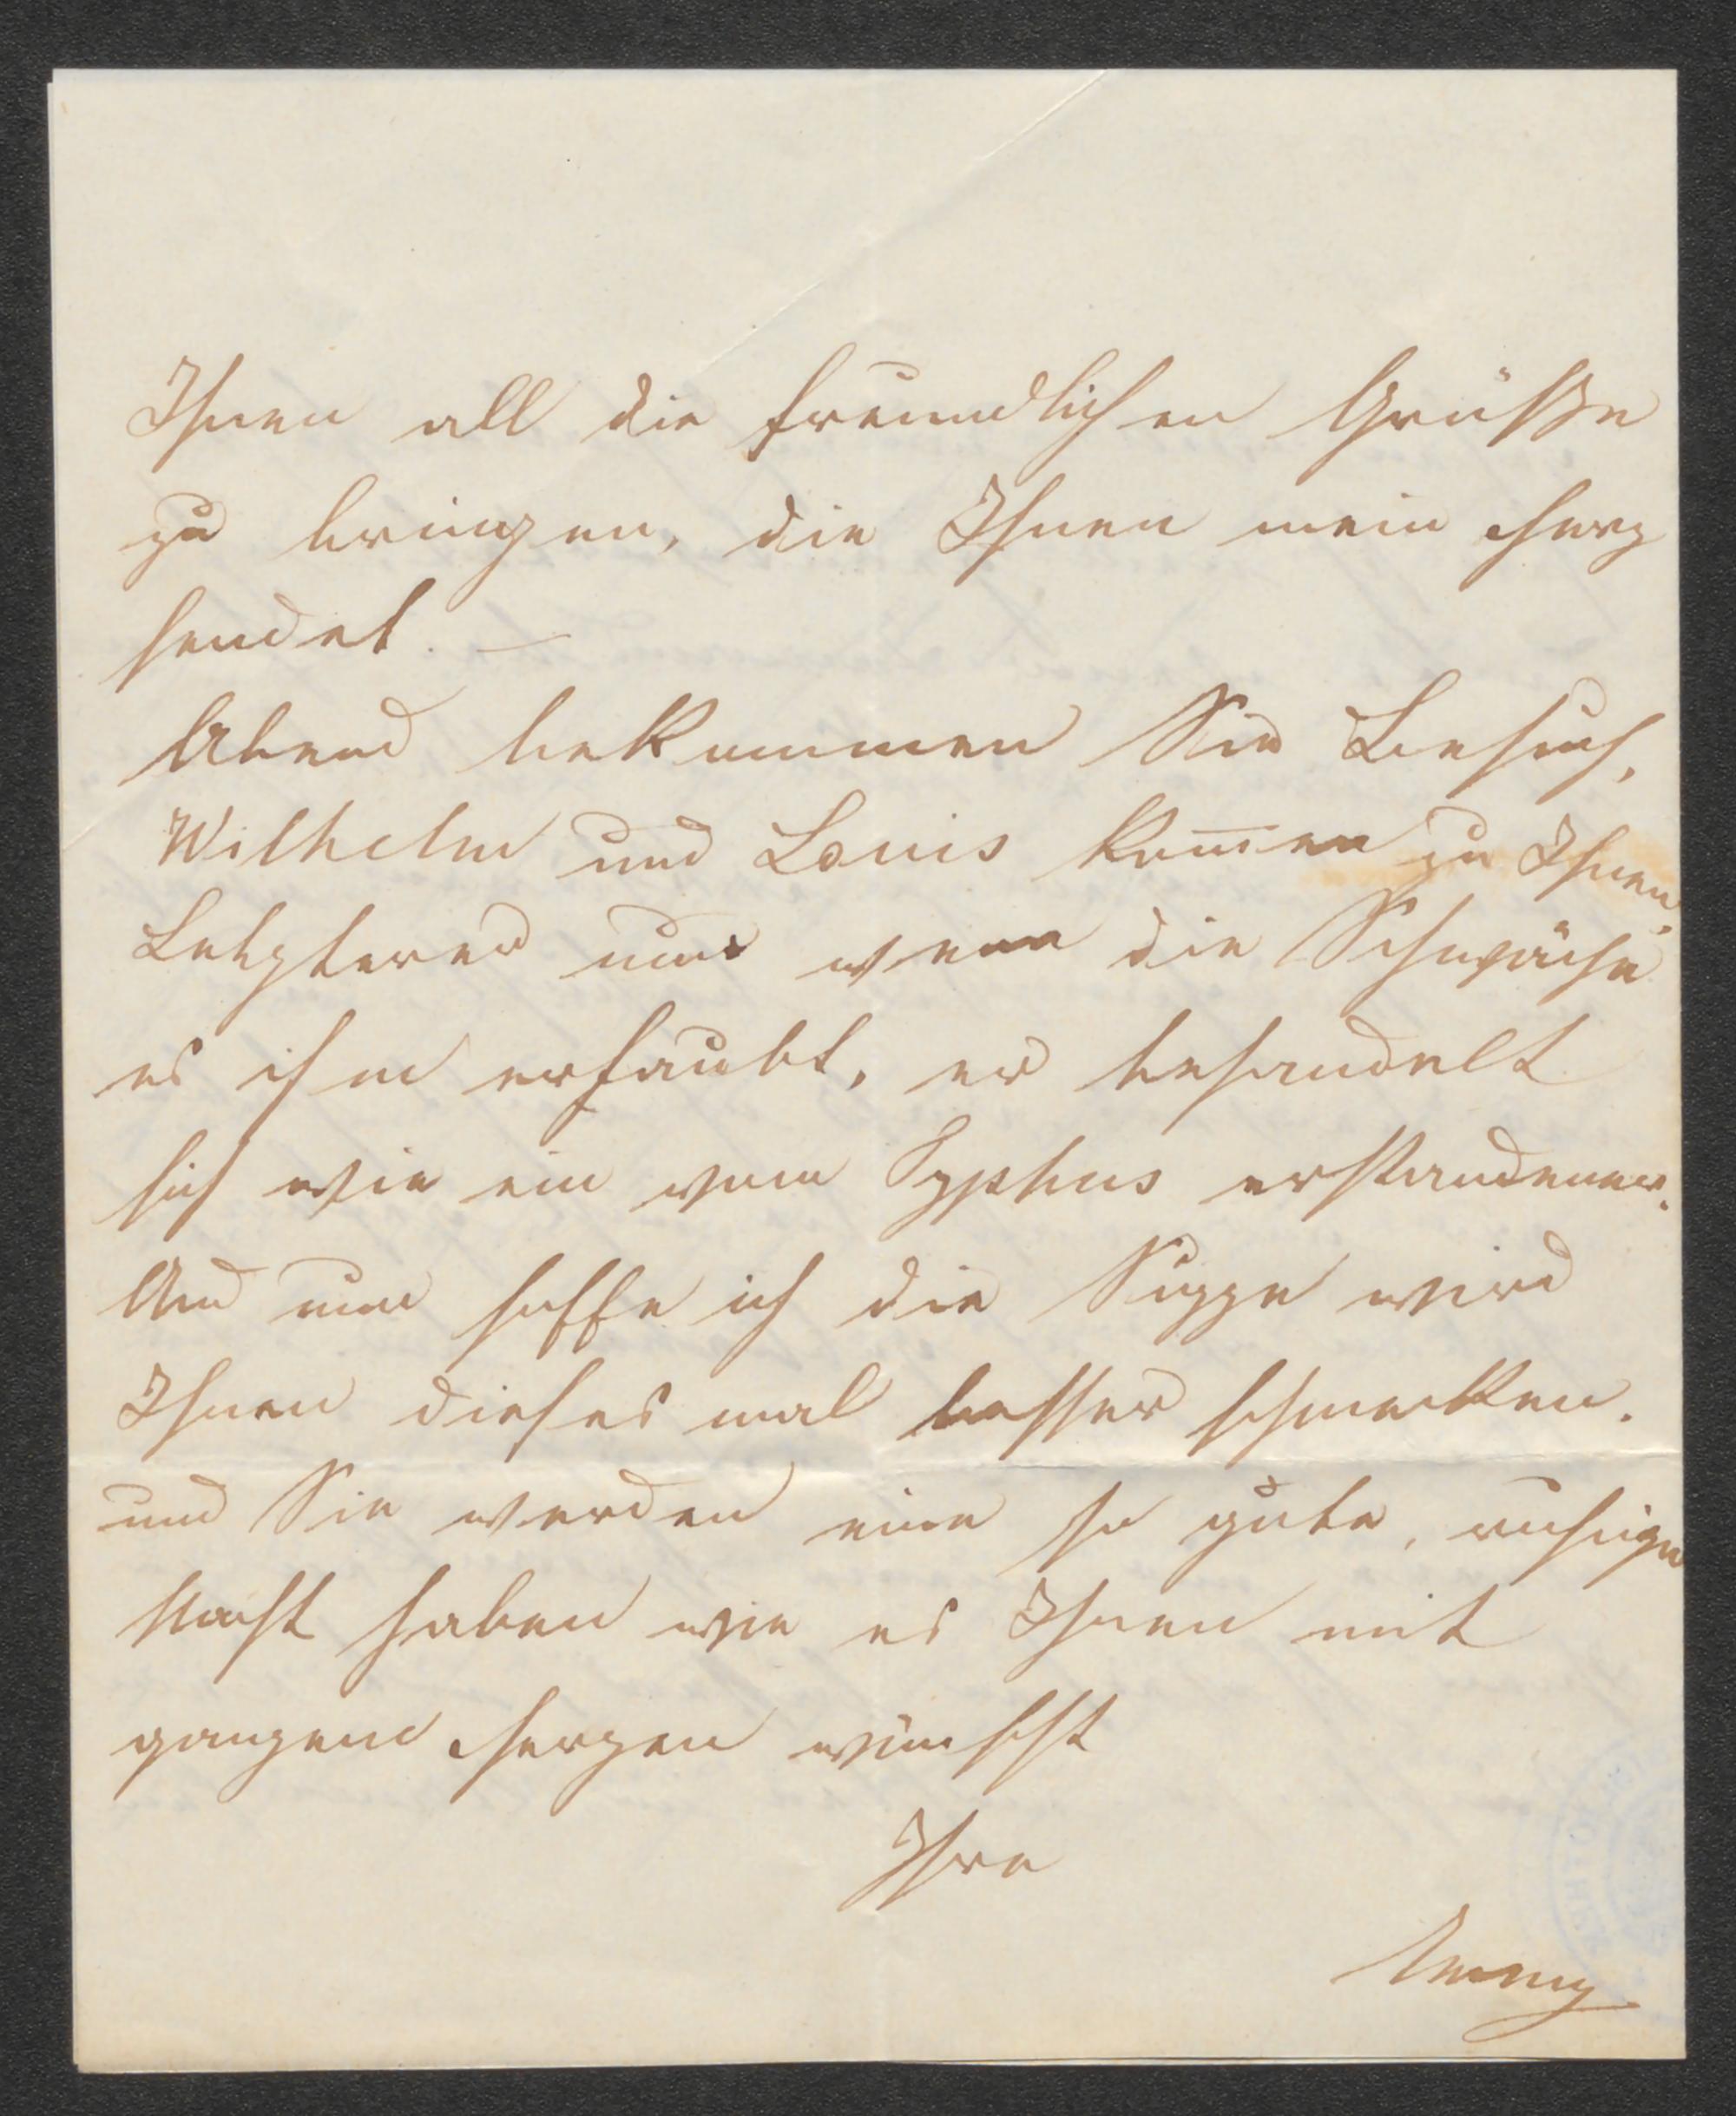 Ihnen all die freundlichen Grüße
zu bringen, die Ihnen mein Herz
sendet. —
Abend bekommen Sie Besuch,
Wilhelm und Louis kom̅en zu Ihnen,
Letzterer nur wenn die Schwäche
es ihm erlaubt, er behandelt
sich wie ein vom Typhus erstandener.
Und nun hoffe ich die Suppe wird
Ihnen dieses mal besser schmecken.
und Sie werden eine so gute, ruhige
Nacht haben wie es Ihnen mit
ganzem Herzen wünscht
Ihre